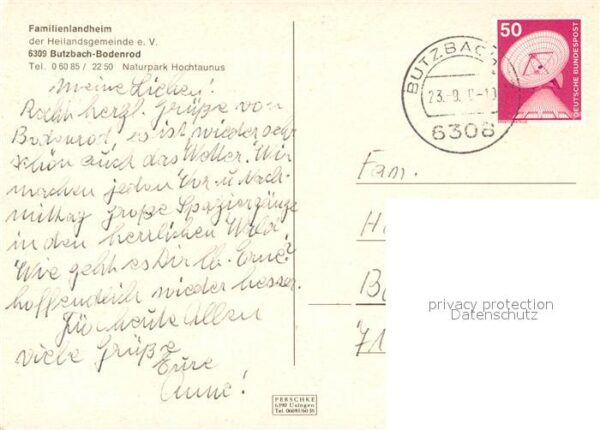 Familienlandheim
der Heilandsgemeinde e. V.
6309 Butzbach-Bodenrod
Tel. 0 60 85 / 22 50 Naturpark Hochtaunus
Meine Lieben!
Recht herzl. Grüße von
Bodenrod, es ist wieder sehr
schön auch das Wetter. Wir
machen jeden Vor. u. Nach-
mittag große Spaziergänge
in den herrlichen Wald.
Wie geht es Dir lb. Erne?
hoffendlich wieder besser.
Für heute Allen
viele Grüße
Eure
Anne!
PERSCHKE
6390 Usingen
50
DEUTSCHE BUNDESPOST
BUTZBACH
23.-9.
6308
Fam.
H
B
71
privacy protection
Datenschutz